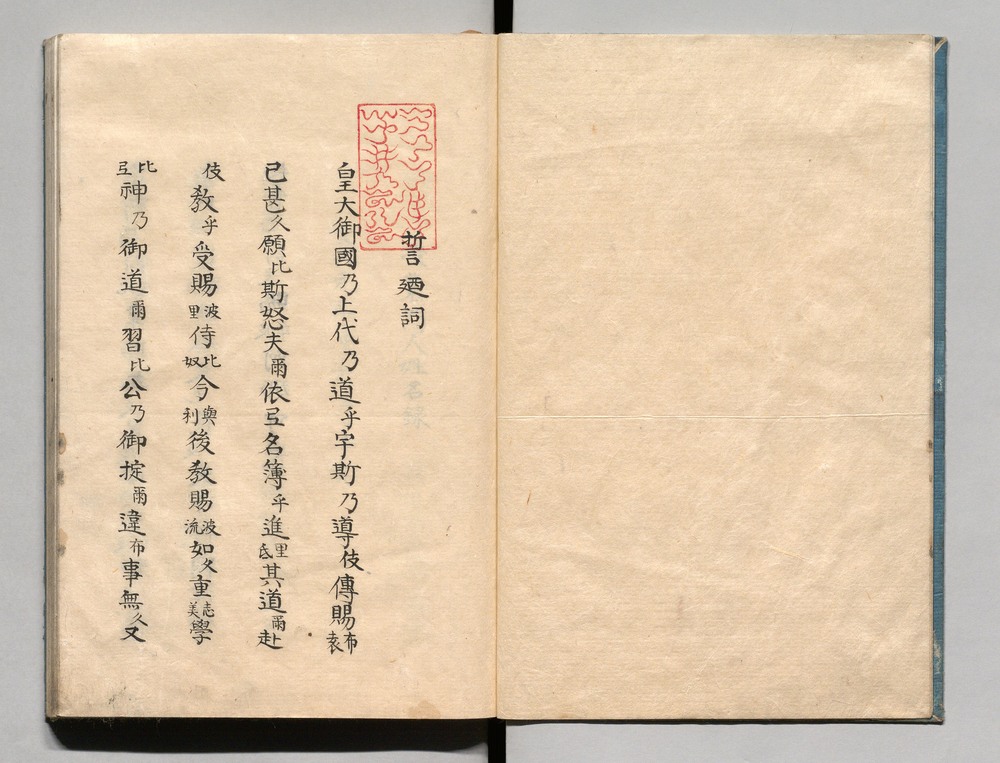 誓廼詞
皇大御國乃上代乃道乎宇斯乃導伎傳賜布袁
己甚久願比斯怒夫爾依弖名簿乎進里氐其道爾赴
伎教乎受賜波里侍比奴今與利後教賜波流如久重志美學
比弖神乃御道爾習比公乃御掟爾違布事無久又